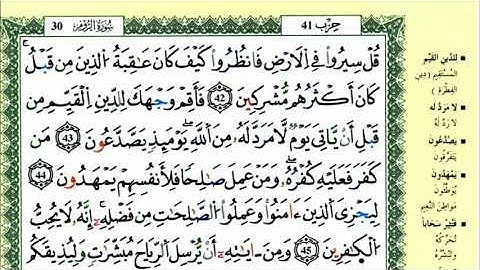 30 سُورَةُ الرُّومِ
حِزْب 41
قُلْ سِيرُوا۟ فِے اِ۬لَارْضِ فَانظُرُوا۟ كَيْفَ كَانَ عَٰقِبَةُ اُ۬لذِينَ مِن قَبْلُ
كَانَ أَكْثَرُهُم مُّشْرِكِينَ 42 فَأَقِمْ وَجْهَكَ لِلدِّينِ اِ۬لْقَيِّمِ مِن
قَبْلِ أَنْ يَّاتِىَ يَوْمٌ لَّا مَرَدَّ لَهُۥ مِنَ اَ۬للَّهِ يَوْمَئِذٍ يَصَّدَّعُونَ 43 مَن
كَفَرَ فَعَلَيْهِ كُفْرُهُۥ وَمَنْ عَمِلَ صَٰلِحاً فَلِأَنفُسِهِمْ يَمْهَدُونَ 44
لِيَجْزِىَ اَ۬لذِينَ ءَامَنُوا۟ وَعَمِلُوا۟ اُ۬لصَّٰلِحَٰتِ مِن فَضْلِهِۦٓ إِنَّهُۥ لَا يُحِبُّ
اُ۬لْكَٰفِرِينَ 45 وَمِنَ ايَٰتِهِۦٓ أَنْ يُّرْسِلَ اَ۬لرِّيَاحَ مُبَشِّرَٰتٍ وَلِيُذِيقَكُم
لِلدِّينِ القَيِّمِ
المُسْتَقِيمِ (دِينِ
الفِطْرَةِ)
لا مَرَدَّ له
لا رَدَّ لَهُ
يَصَّدَّعُونَ
يَتَفَرَّقُونَ
يَمْهَدُونَ
يُوَطِّئُونَ
مَوَاطِنَ النَّعِيمِ
فَتُثِيرُ سَحَاباً
تُحَرِّكُهُ
وَتَنْشُرُهُ